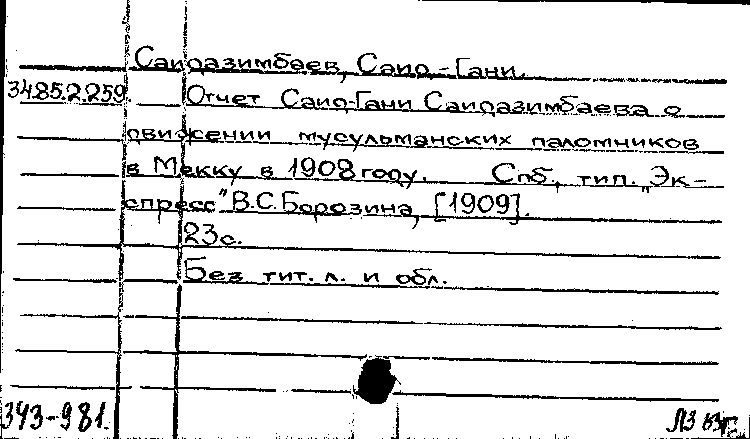 Саидазимбаев, Саид-Гани.
34.85.2.259. Отчет Саид-Гани Саидазимбаева о
движении мусульманских паломников
в Мекку в 1908 году. Спб, тип. „Эк-
спресс" В.С.Борозина, [1909].
23с.
Без тит. л. и обл.
343-981.
ЛЗ 63г.